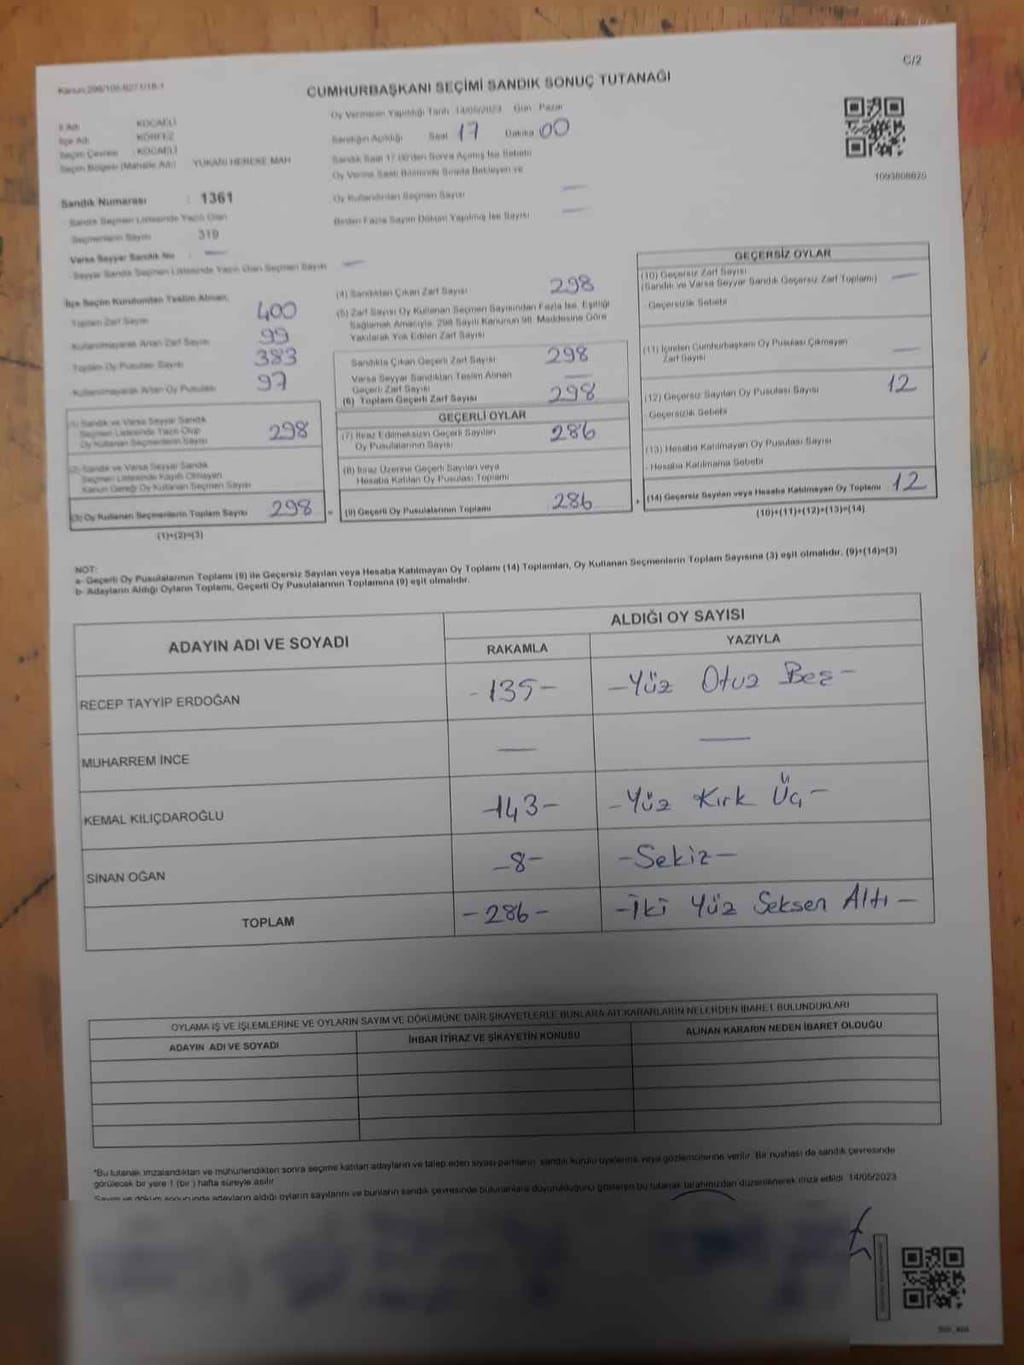 C/2
Kanun 298/105-8271/18-1
CUMHURBAŞKANI SEÇİMİ SANDIK SONUÇ TUTANAĞI
Oy Vermenin Yapıldığı Tarih 14/05/2023 Gün Pazar
İl Adı KOCAELİ
İlçe Adı KÖRFEZ
Seçim Çevresi KOCAELİ
Seçim Bölgesi (Mahalle Adı) YUKARI HEREKE MAH
Sandığın Açıldığı Saat 17 Dakika 00
Sandık Saat 17.00'den Sonra Açılmış İse Sebebi
Oy Verme Saati Bitiminde Sırada Bekleyen ve
Oy Kullandırılan Seçmen Sayısı —
Birden Fazla Sayım Döküm Yapılmış İse Sayısı —
1093808620
Sandık Numarası : 1361
Sandık Seçmen Listesinde Yazılı Olan
Seçmenlerin Sayısı 319
Varsa Seyyar Sandık No : —
Seyyar Sandık Seçmen Listesinde Yazılı Olan Seçmen Sayısı —
İlçe Seçim Kurulundan Teslim Alınan;
Toplam Zarf Sayısı 400
Kullanılmayarak Artan Zarf Sayısı 99
Toplam Oy Pusulası Sayısı 383
Kullanılmayarak Artan Oy Pusulası 97
(1) Sandık ve Varsa Seyyar Sandık
Seçmen Listesinde Yazılı Olup
Oy Kullanan Seçmenlerin Sayısı 298
(2) Sandık ve Varsa Seyyar Sandık
Seçmen Listesinde Kayıtlı Olmayan
Kanun Gereği Oy Kullanan Seçmen Sayısı
(3) Oy Kullanan Seçmenlerin Toplam Sayısı 298
(1)+(2)=(3)
(4) Sandıktan Çıkan Zarf Sayısı 298
(5) Zarf Sayısı Oy Kullanan Seçmen Sayısından Fazla İse, Eşitliği
Sağlamak Amacıyla, 298 Sayılı Kanunun 98. Maddesine Göre
Yakılarak Yok Edilen Zarf Sayısı
Sandıkta Çıkan Geçerli Zarf Sayısı 298
Varsa Seyyar Sandıktan Teslim Alınan
Geçerli Zarf Sayısı —
(6) Toplam Geçerli Zarf Sayısı 298
GEÇERLİ OYLAR
(7) İtiraz Edilmeksizin Geçerli Sayılan
Oy Pusulalarının Sayısı 286
(8) İtiraz Üzerine Geçerli Sayılan veya
Hesaba Katılan Oy Pusulası Toplamı
(9) Geçerli Oy Pusulalarının Toplamı 286
GEÇERSİZ OYLAR
(10) Geçersiz Zarf Sayısı
(Sandık ve Varsa Seyyar Sandık Geçersiz Zarf Toplamı) —
Geçersizlik Sebebi
(11) İçinden Cumhurbaşkanı Oy Pusulası Çıkmayan
Zarf Sayısı —
(12) Geçersiz Sayılan Oy Pusulası Sayısı 12
Geçersizlik Sebebi
(13) Hesaba Katılmayan Oy Pusulası Sayısı
Hesaba Katılmama Sebebi
(14) Geçersiz Sayılan veya Hesaba Katılmayan Oy Toplamı 12
(10)+(11)+(12)+(13)=(14)
NOT:
a- Geçerli Oy Pusulalarının Toplamı (9) ile Geçersiz Sayılan veya Hesaba Katılmayan Oy Toplamı (14) Toplamları, Oy Kullanan Seçmenlerin Toplam Sayısına (3) eşit olmalıdır. (9)+(14)=(3)
b- Adayların Aldığı Oyların Toplamı, Geçerli Oy Pusulalarının Toplamına (9) eşit olmalıdır.
ADAYIN ADI VE SOYADI
ALDIĞI OY SAYISI
RAKAMLA YAZIYLA
RECEP TAYYİP ERDOĞAN -135- -Yüz Otuz Beş-
MUHARREM İNCE — —
KEMAL KILIÇDAROĞLU -143- -Yüz Kırk Üç-
SİNAN OĞAN -8- -Sekiz-
TOPLAM -286- -İki Yüz Seksen Altı-
OYLAMA İŞ VE İŞLEMLERİNE VE OYLARIN SAYIM VE DÖKÜMÜNE DAİR ŞİKAYETLERLE BUNLARA AİT KARARLARIN NELERDEN İBARET BULUNDUKLARI
ADAYIN ADI VE SOYADI İHBAR İTİRAZ VE ŞİKAYETİN KONUSU ALINAN KARARIN NEDEN İBARET OLDUĞU
*Bu tutanak imzalandıktan ve mühürlendikten sonra seçime katılan adayların ve talep eden siyasi partilerin sandık kurulu üyelerine veya gözlemcilerine verilir. Bir nüshası da sandık çevresinde
görülecek bir yere 1 (bir) hafta süreyle asılır.
Sayım ve döküm sonucunda adayların aldığı oyların sayılarını ve bunların sandık çevresinde bulunanlara duyurulduğunu gösteren bu tutanak tarafımızdan düzenlenerek imza edildi. 14/05/2023